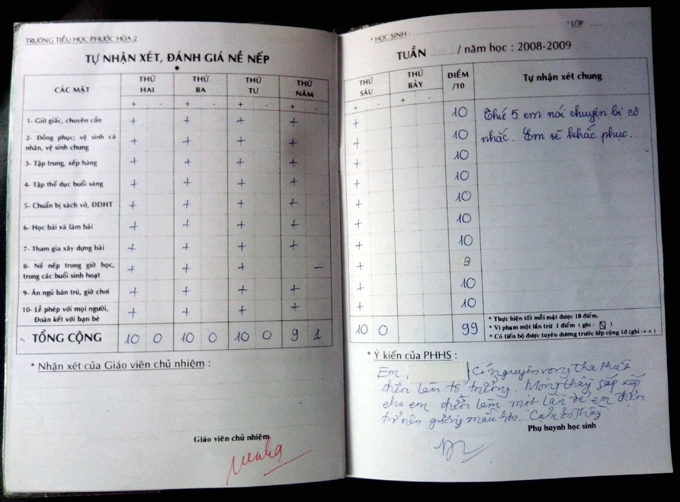 TRƯỜNG TIỂU HỌC PHƯỚC HÒA 2
TỰ NHẬN XÉT, ĐÁNH GIÁ NỀ NẾP
CÁC MẶT THỨ HAI THỨ BA THỨ TƯ THỨ NĂM
+ - + - + - + -
1- Giờ giấc, chuyên cần + + + +
2- Đồng phục, vệ sinh cá nhân, vệ sinh chung + + + +
3- Tập trung, xếp hàng + + + +
4- Tập thể dục buổi sáng + + + +
5- Chuẩn bị sách vở, ĐDHT + + + +
6- Học bài và làm bài + + + +
7- Tham gia xây dựng bài + + + +
8- Nề nếp trong giờ học, trong các buổi sinh hoạt + + + -
9- Ăn ngủ bán trú, giờ chơi + + + +
10- Lễ phép với mọi người, Đoàn kết với bạn bè + + + +
TỔNG CỘNG 10 0 10 0 10 0 9 1
* Nhận xét của Giáo viên chủ nhiệm :
Giáo viên chủ nhiệm
* HỌC SINH : * LỚP
TUẦN / năm học : 2008-2009
THỨ SÁU THỨ BẢY ĐIỂM /10 Tự nhận xét chung
+ - + -
+ 10 Thứ 5 em nói chuyện bị cô
+ 10 nhắc. Em sẽ khắc phục.
+ 10
+ 10
+ 10
+ 10
+ 10
+ 9
+ 10
+ 10
10 0 99
* Thực hiện tốt mỗi mặt được 10 điểm.
* Vi phạm một lần trừ 1 điểm ( ghi : )
* Có tiến bộ được tuyên dương trước lớp cộng 1đ (ghi : + + )
* Ý kiến của PHHS :
Em Có nguyện vọng tha thiết
được làm tổ trưởng. Mong thầy sắp xếp
cho em được làm một lần để em được
trở nên gương mẫu hơn. Cảm ơn Thầy
Phụ huynh học sinh